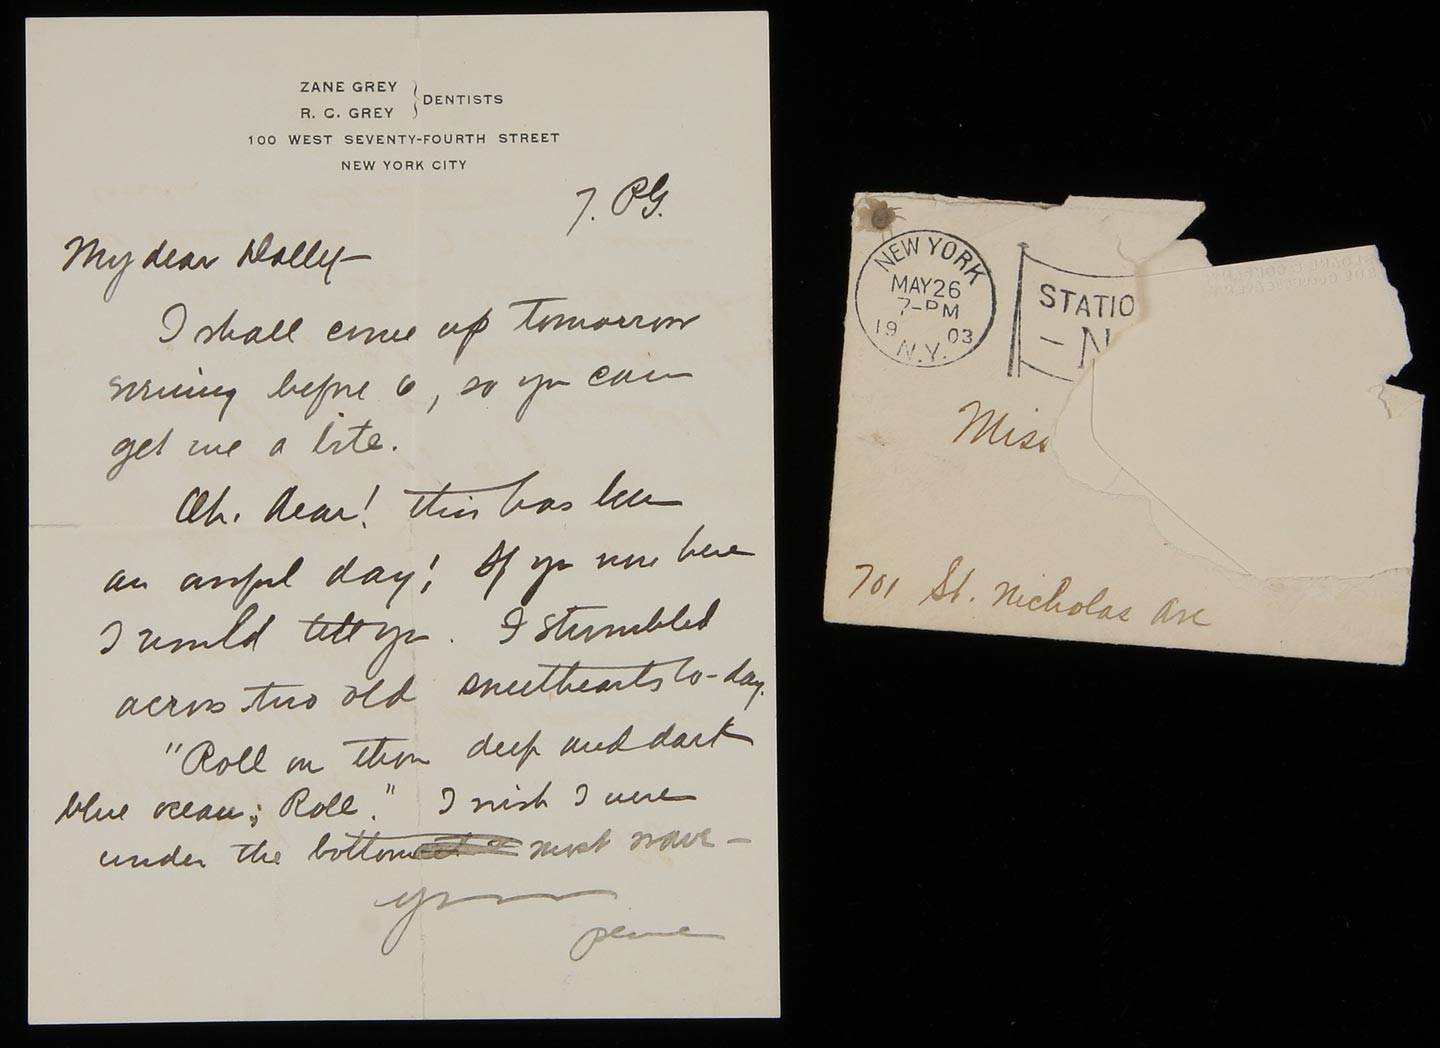 ZANE GREY
R. C. GREY
DENTISTS
100 WEST SEVENTY-FOURTH STREET
NEW YORK CITY
7. PG.
My dear Dolly—
I shall come up tomorrow
evening before 6, so you can
get me a bite.
Oh. Dear! this has been
an awful day! If you were here
I would tell you. I stumbled
across two old sweethearts to-day.
"Roll on thou deep and dark
blue ocean; Roll." I wish I were
under the bottom most wave—
Yours
Pearl
NEW YORK
MAY 26
7-PM
19 03
N.Y.
STATIO
- N
Miss
701 St. Nicholas Ave